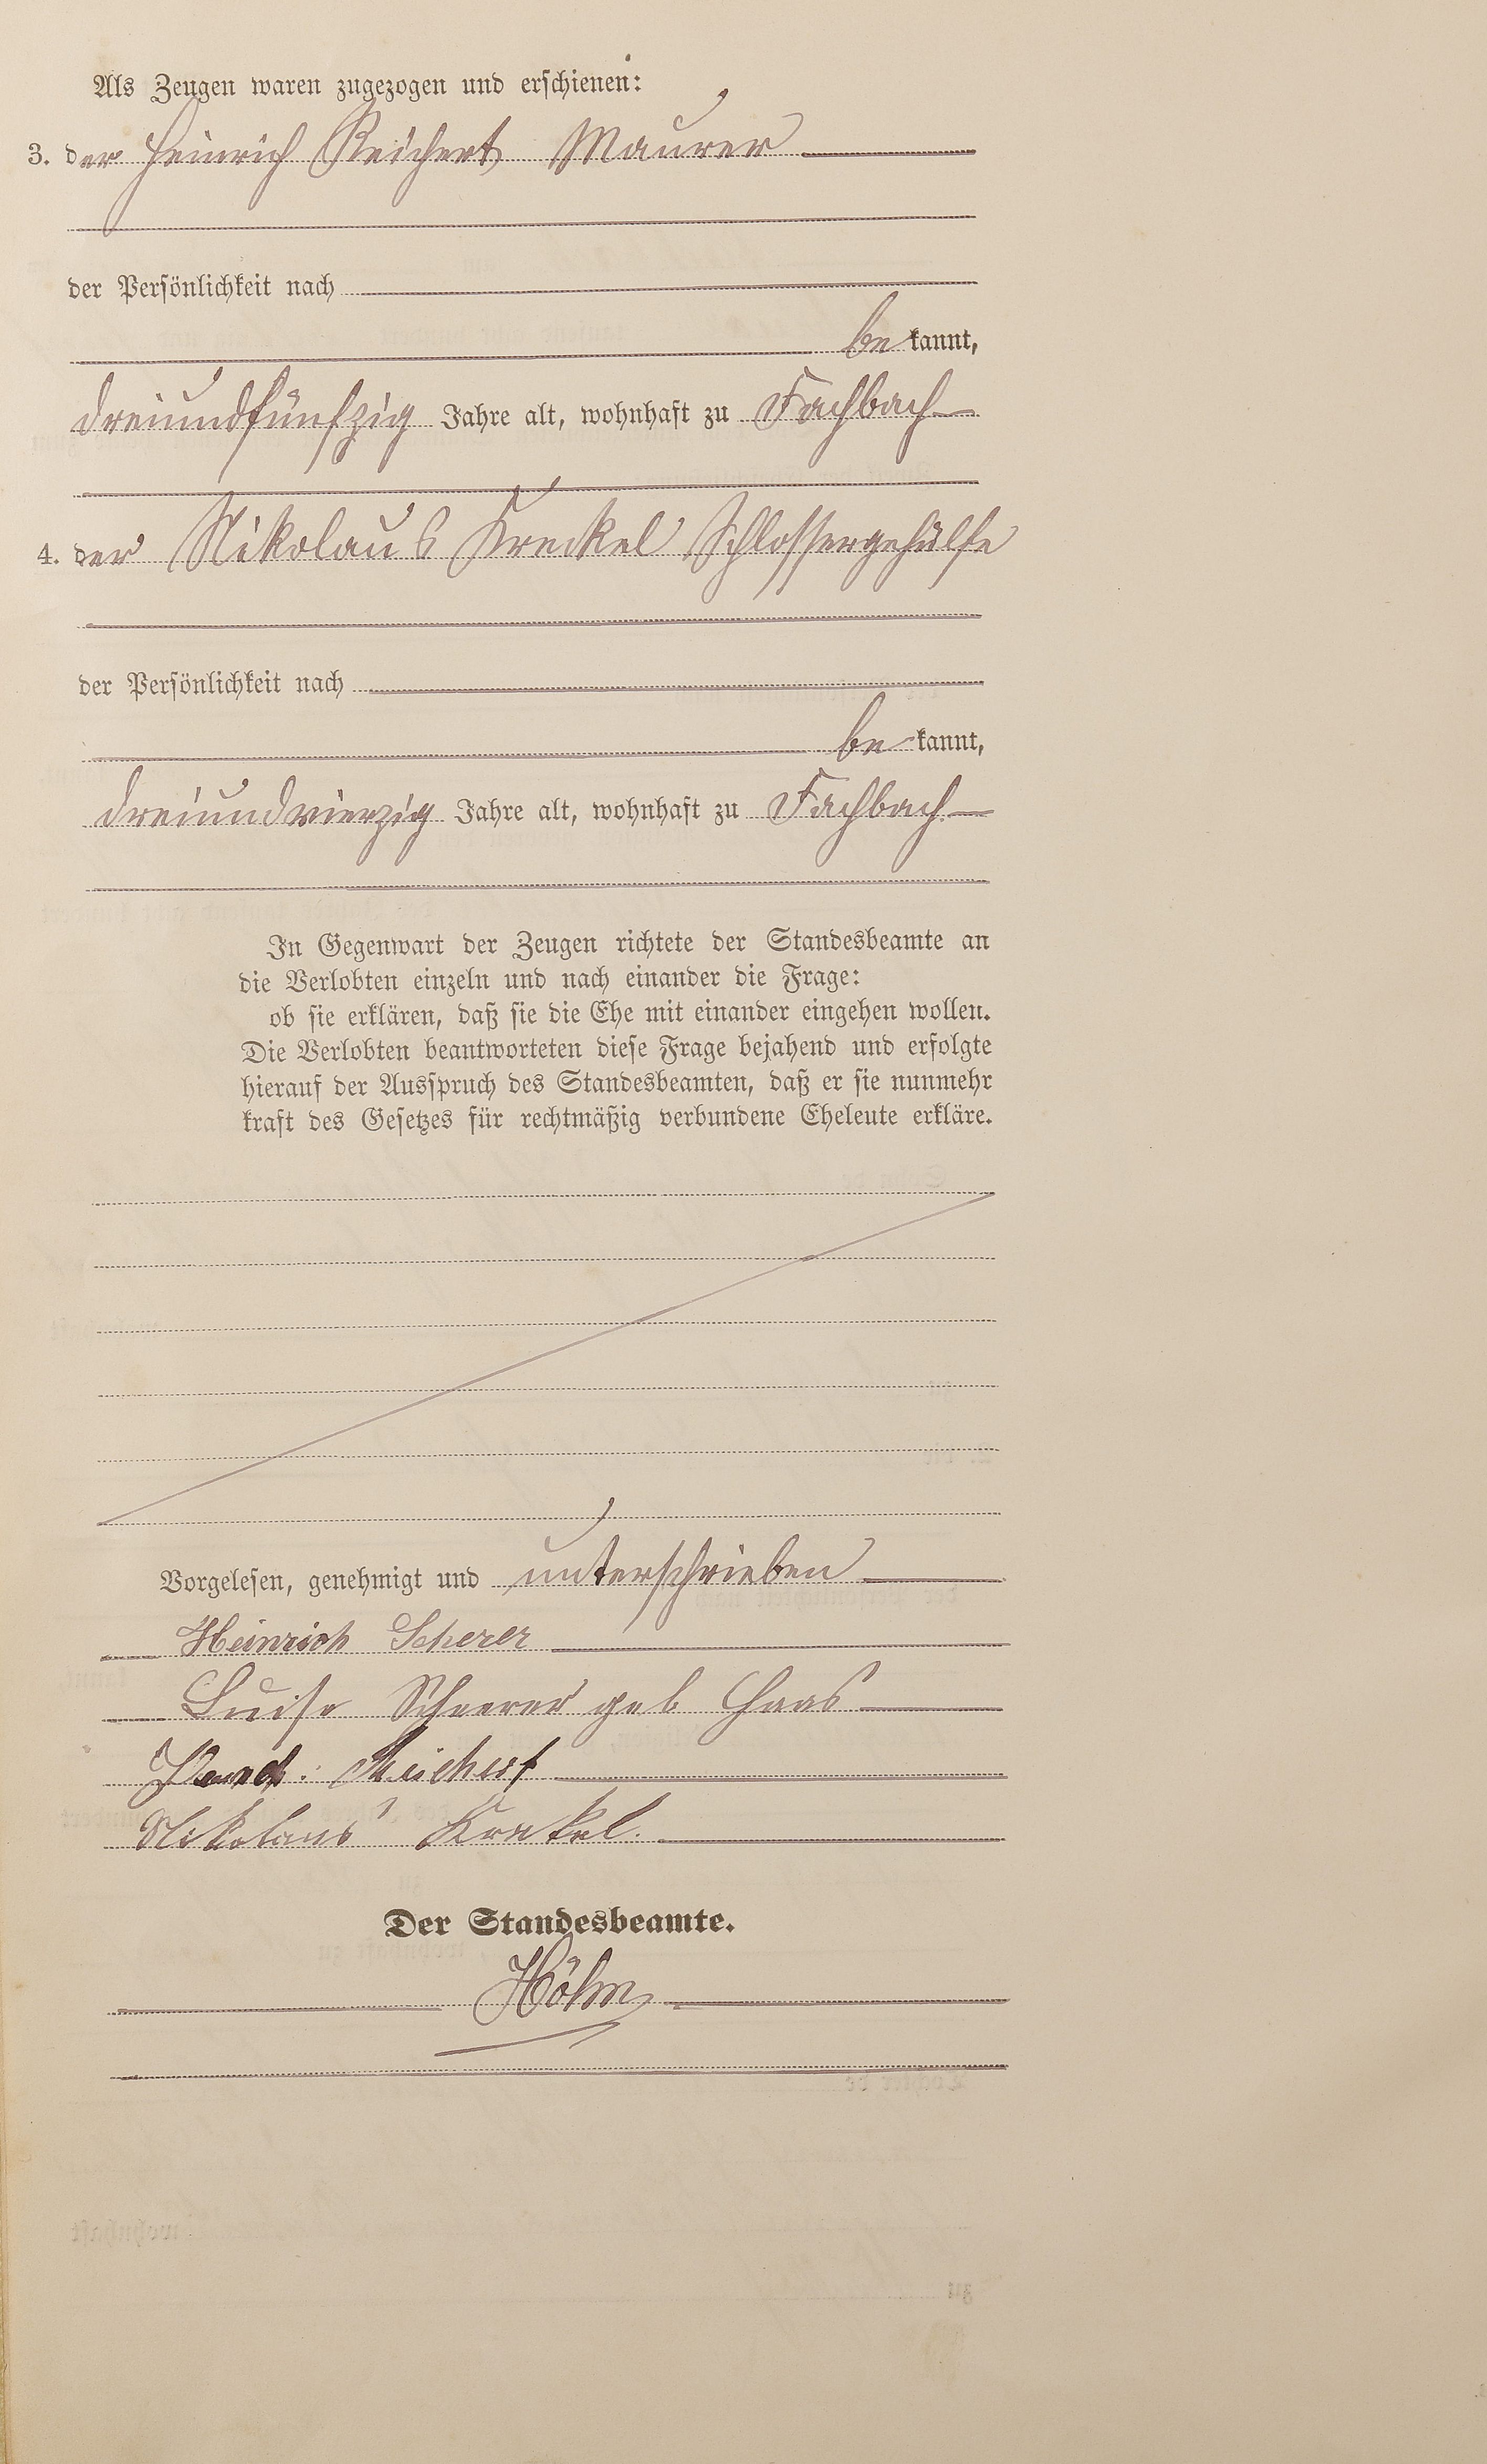 Als Zeugen waren zugezogen und erschienen:
3. der Heinrich Reichert Maurer
der Persönlichkeit nach
be kannt,
dreiundfünfzig Jahre alt, wohnhaft zu Fachbach
4. der Nikolaus Kreckel Schlossergehülfe
der Persönlichkeit nach
be kannt,
dreiundvierzig Jahre alt, wohnhaft zu Fachbach
In Gegenwart der Zeugen richtete der Standesbeamte an
die Verlobten einzeln und nach einander die Frage:
ob sie erklären, daß sie die Ehe mit einander eingehen wollen.
Die Verlobten beantworteten diese Frage bejahend und erfolgte
hierauf der Ausspruch des Standesbeamten, daß er sie nunmehr
kraft des Gesetzes für rechtmäßig verbundene Eheleute erkläre.
Vorgelesen, genehmigt und unterschrieben
Heinrich Scherer
Luise Scheerer geb Haas
Reichert
Nikolaus Krekel.
Der Standesbeamte.